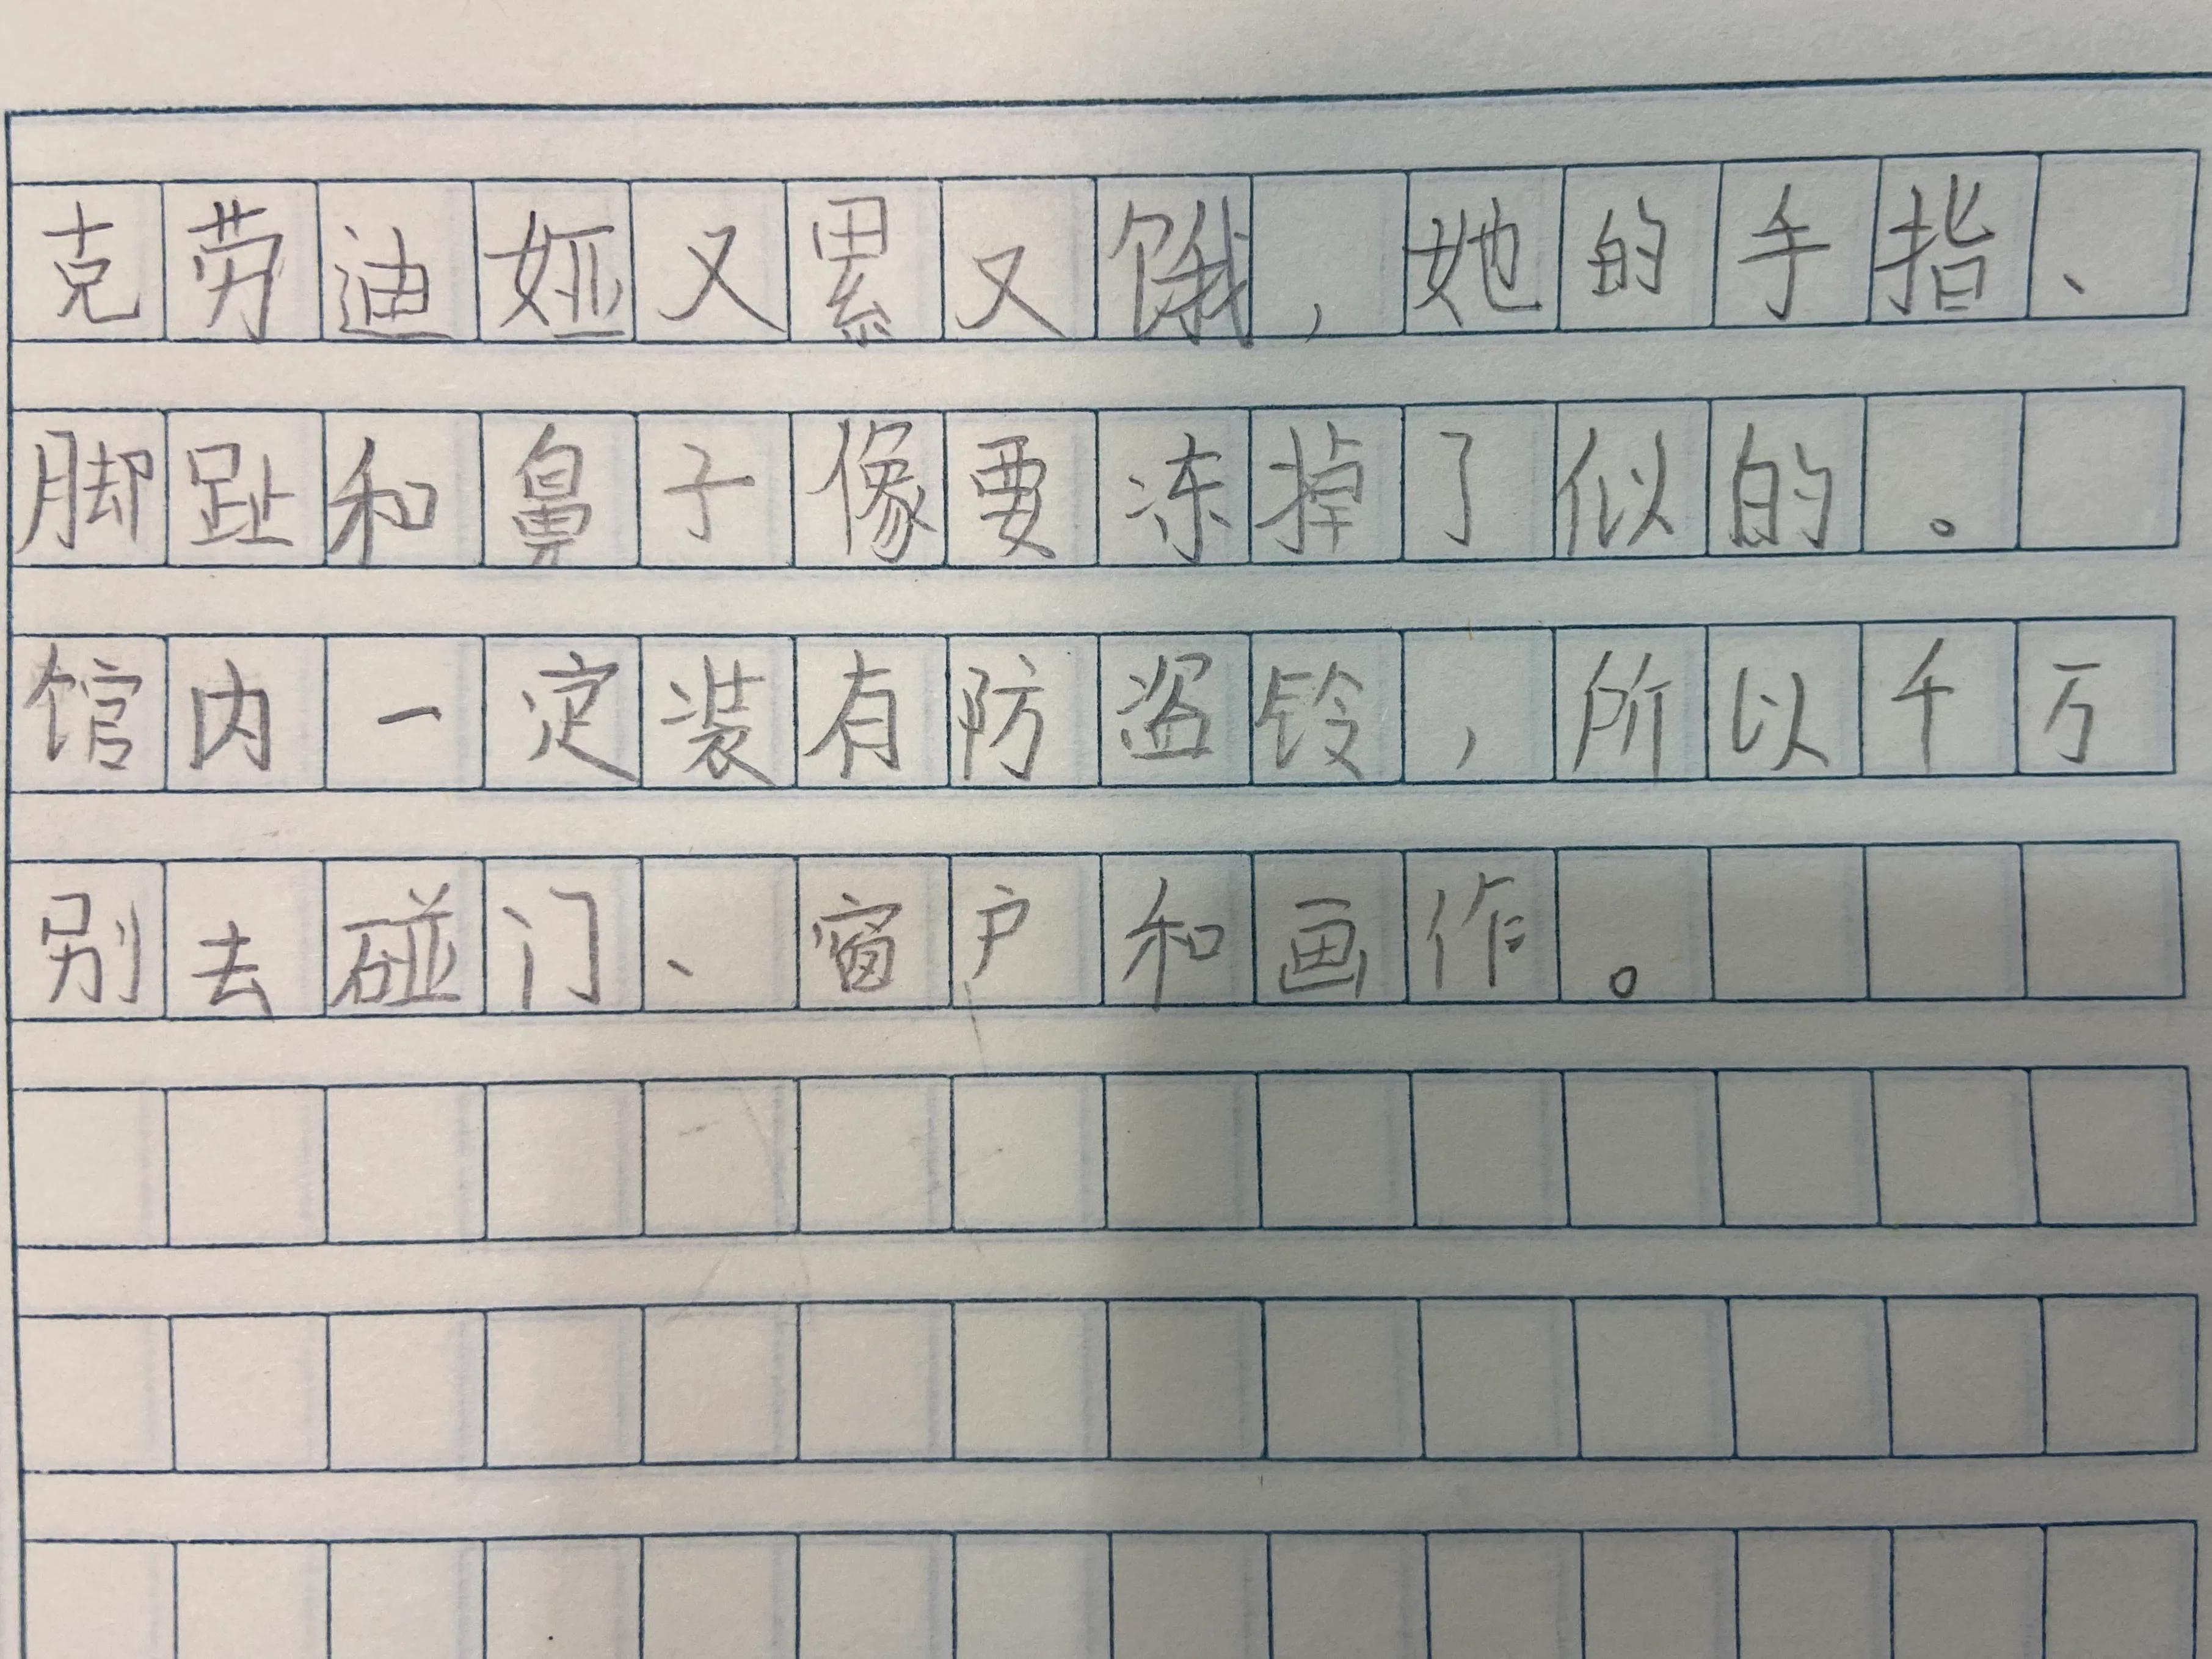 克劳迪娅又累又饿，她的手指、
脚趾和鼻子像要冻掉了似的。
馆内一定装有防盗铃，所以千万
别去碰门、窗户和画作。